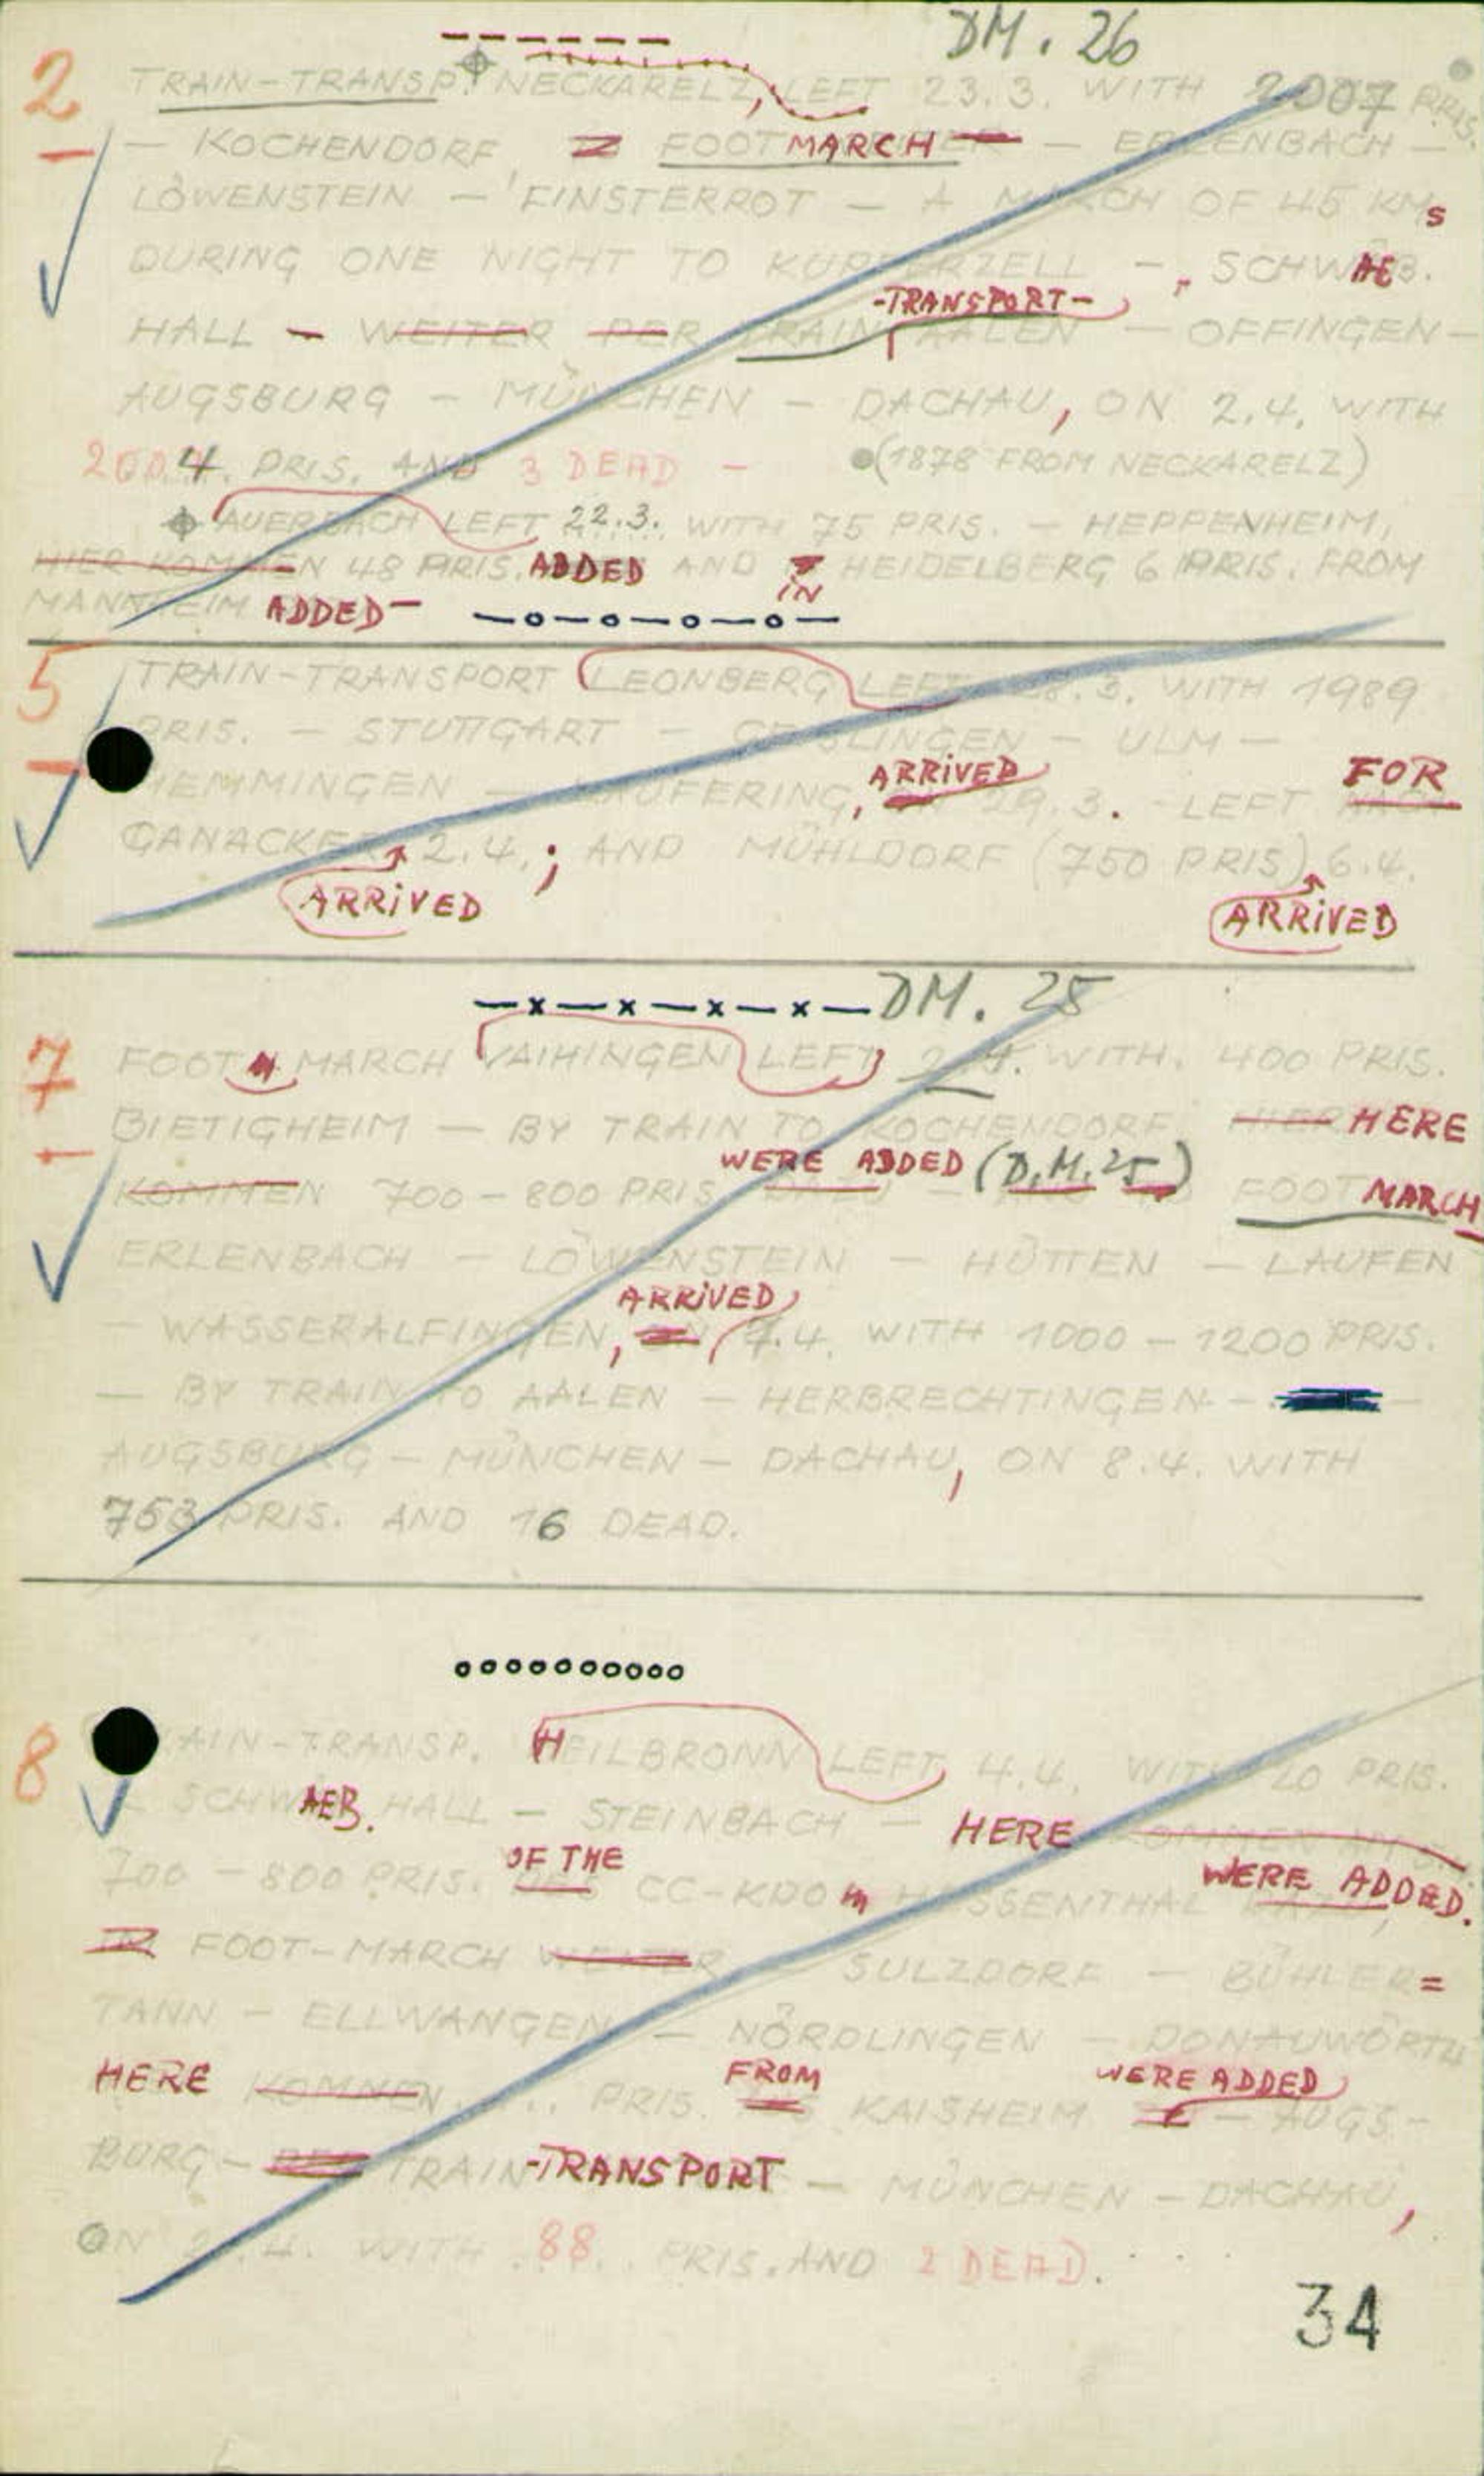 DM. 26
2 TRAIN-TRANSP. NECKARELZ, LEFT 23.3. WITH 2007 PRIS.
— KOCHENDORF FOOT MARCH — — ERLENBACH —
LÖWENSTEIN — FINSTERROT — A MARCH OF 45 KMS
DURING ONE NIGHT TO KUPFERZELL — SCHWAEB.
-TRANSPORT-
HALL - WEITER PER TRAIN AALEN — OFFINGEN —
AUGSBURG — MÜNCHEN — DACHAU, ON 2.4. WITH
2004. PRIS. AND 3 DEAD — (1878 FROM NECKARELZ)
AUERBACH LEFT 22.3. WITH 75 PRIS. — HEPPENHEIM,
HIER KOMMEN 48 PRIS. ADDED AND IN HEIDELBERG 6 PRIS. FROM
MANNHEIM ADDED —
5 TRAIN-TRANSPORT LEONBERG LEFT 28.3. WITH 1989
PRIS. — STUTTGART — GEISLINGEN — ULM —
ARRIVED FOR
MEMMINGEN — KAUFERING, 29.3. LEFT
GANACKER 2.4.; AND MÜHLDORF (750 PRIS), 6.4.
ARRIVED ARRIVED
DM. 25
7 FOOT MARCH VAIHINGEN LEFT 2.4. WITH. 400 PRIS.
BIETIGHEIM — BY TRAIN TO KOCHENDORF HIER HERE
WERE ADDED (D.M.25)
KOMMEN 700 — 800 PRIS FOOT MARCH
ERLENBACH — LÖWENSTEIN — HÜTTEN — LAUFEN
ARRIVED
— WASSERALFINGEN, 7.4. WITH 1000 — 1200 PRIS.
— BY TRAIN TO AALEN — HERBRECHTINGEN — —
AUGSBURG — MÜNCHEN — DACHAU, ON 8.4. WITH
753 PRIS. AND 16 DEAD.
8 TRAIN-TRANSP. HEILBRONN LEFT 4.4. WITH 20 PRIS.
SCHWAEB. HALL — STEINBACH — HERE KOMMEN
OF THE WERE ADDED.
700 — 800 PRIS. CC-KDO HESSENTHAL
FOOT-MARCH WEITER SULZDORF — BÜHLER=
TANN — ELLWANGEN — NÖRDLINGEN — DONAUWÖRTH
FROM WERE ADDED
HERE KOMMEN .... PRIS. KAISHEIM — AUGS-
BURG — PER TRAIN-TRANSPORT — MÜNCHEN — DACHAU,
ON .4. WITH .88.. PRIS. AND 2 DEAD.
34